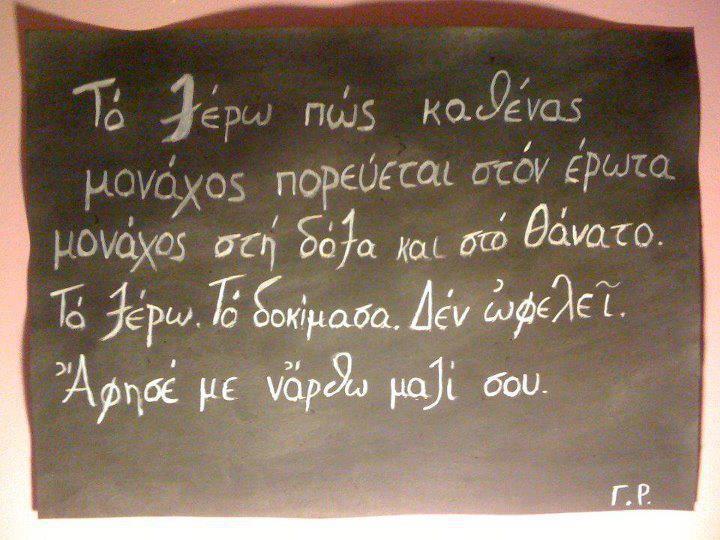 Τό ξέρω πώς καθένας
μονάχος πορεύεται στόν έρωτα
μονάχος στή δόξα και στό θάνατο.
Τό ξέρω. Τό δοκίμασα. Δέν ὠφελεῖ.
Ἄφησέ με νἄρθω μαζί σου.
Γ.Ρ.